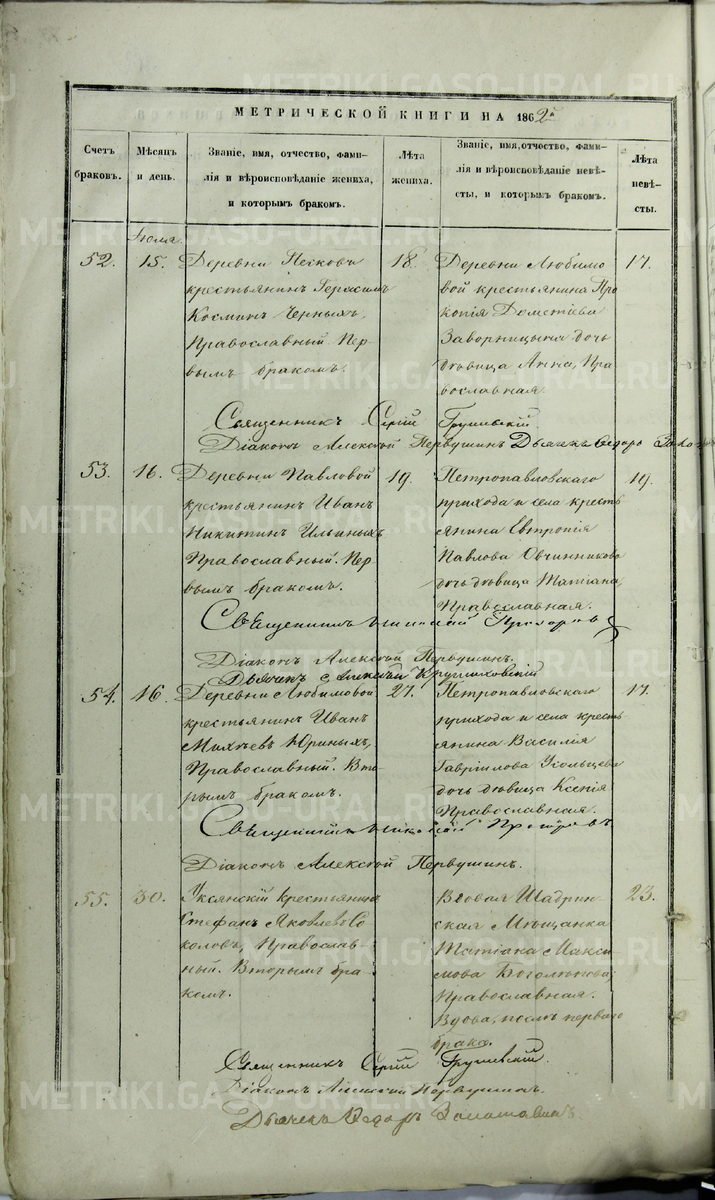 МЕТРИЧЕСКОЙ КНИГИ НА 1862й
Счетъ браковъ.
Мѣсяцъ и день.
Званіе, имя, отчество, фами-
лія и вѣроисповѣданіе жениха,
и которымъ бракомъ.
Лѣта жениха.
Званіе, имя, отчество, фами-
лія и вѣроисповѣданіе невѣ-
сты, и которымъ бракомъ.
Лѣта невѣ-
сты.
52.
15.
Деревни
крестьянинъ Герасимъ
Космин Черныхъ,
Православный. Пер
вымъ бракомъ.
18.
Деревни Любимо
вой крестьянина Про
копія Дометіева
Заворницына дочь
дѣвица Анна, Пра
вославная.
17.
Священникъ Сергій
Діаконъ Алексѣй Первушинъ Дьячекъ Ѳедоръ
53.
16.
Деревни Павловой
крестьянинъ Иванъ
Никитинъ Ильиныхъ
Православный. Пер
вымъ бракомъ.
19.
Петропавловскаго
прихода и села кресть
янина Евтропія
Павлова Овчинникова
дочь дѣвица Татіана,
Православная.
19.
Священникъ Николай
Діаконъ Алексѣй Первушинъ.
Дьячекъ Алексѣй
54.
16.
Деревни Любимовой
крестьянинъ Иванъ
Михѣевъ Юриныхъ,
Православный. Вто
рымъ бракомъ.
27.
Петропавловскаго
прихода и села кресть
янина Василія
Гавріилова Усольцева
дочь дѣвица Ксенія
Православная.
17.
Священникъ Николай
Діаконъ Алексѣй Первушинъ.
55.
30.
Уксянскій крестьянинъ
Стефанъ Яковлевъ Со
коловъ, Православ
ный. Вторымъ бра
комъ.
Вдовая Шадрин
ская Мѣщанка
Татіана Макси
мова Боголюбова,
Православная.
Вдова, послѣ перваго
брака.
23.
Священникъ Сергій
Діаконъ Алексѣй Первушинъ.
Дьячекъ Ѳедоръ
METRIKI.GASO-URAL.RU